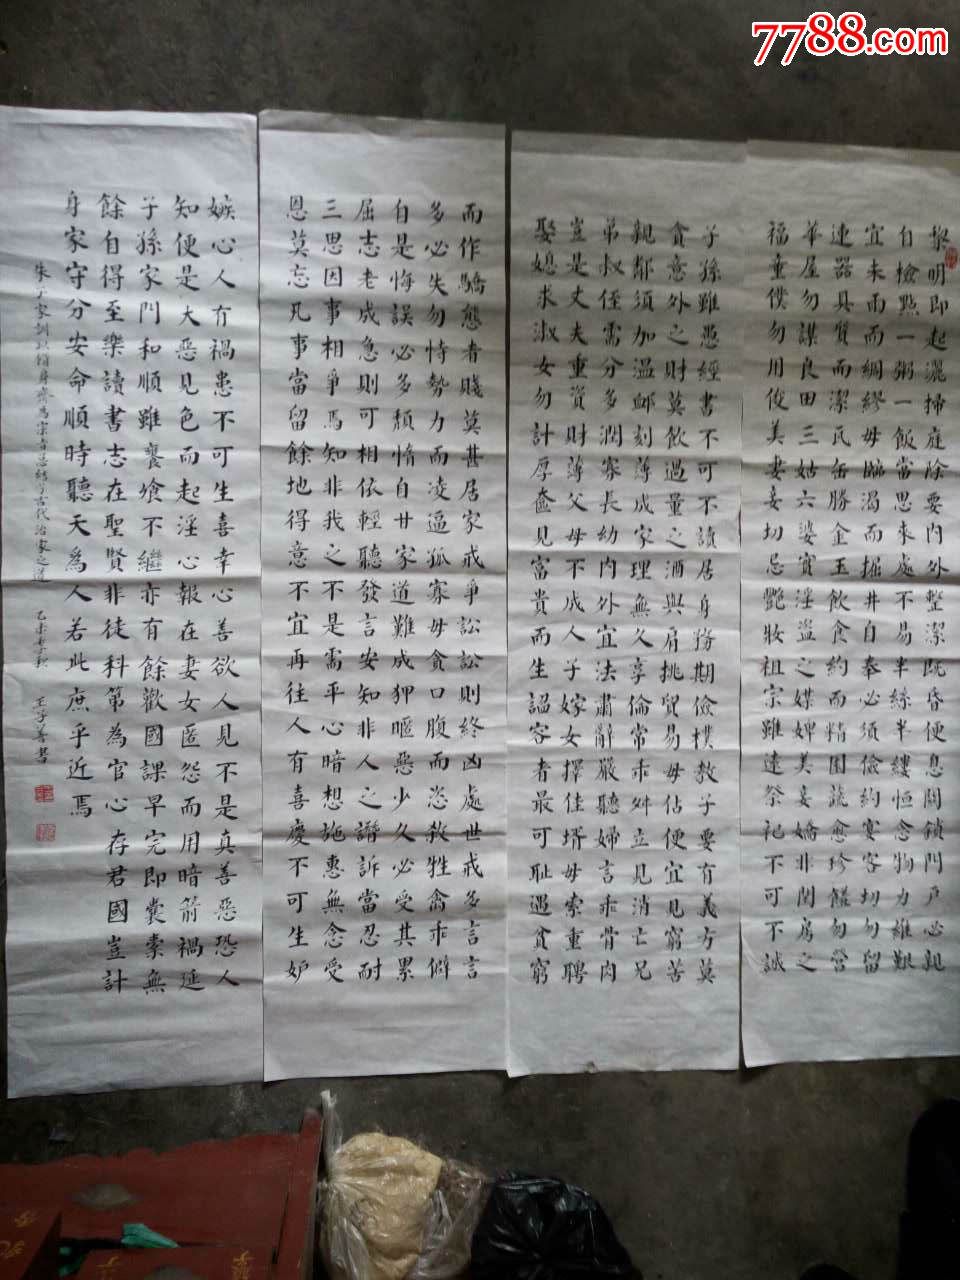 7788.com
黎明即起灑掃庭除要內外整潔既昏便息關鎖門戶必親
自檢點一粥一飯當思來處不易半絲半縷恒念物力維艱
宜未雨而綢繆毋臨渴而掘井自奉必須儉約宴客切勿留
連器具質而潔瓦缶勝金玉飲食約而精園蔬愈珍饈勿營
華屋勿謀良田三姑六婆實淫盜之媒婢美妾嬌非閨房之
福童僕勿用俊美妻妾切忌艷妝祖宗雖遠祭祀不可不誠
子孫雖愚經書不可不讀居身務期儉樸教子要有義方莫
貪意外之財莫飲過量之酒與肩挑貿易毋佔便宜見窮苦
親鄰須加溫卹刻薄成家理無久享倫常乖舛立見消亡兄
弟叔侄需分多潤寡長幼內外宜法肅辭嚴聽婦言乖骨肉
豈是丈夫重資財薄父母不成人子嫁女擇佳壻毋索重聘
娶媳求淑女勿計厚奩見富貴而生謟容者最可恥遇貧窮
而作驕態者賤莫甚居家戒爭訟訟則終凶處世戒多言言
多必失勿恃勢力而凌逼孤寡毋貪口腹而恣殺牲禽乖僻
自是悔誤必多頹惰自甘家道難成狎暱惡少久必受其累
屈志老成急則可相依輕聽發言安知非人之譖訴當忍耐
三思因事相爭焉知非我之不是需平心暗想施惠無念受
恩莫忘凡事當留餘地得意不宜再往人有喜慶不可生妒
嫉心人有禍患不可生喜幸心善欲人見不是真善惡恐人
知便是大惡見色而起淫心報在妻女匿怨而用暗箭禍延
子孫家門和順雖饔飧不繼亦有餘歡國課早完即囊橐無
餘自得至樂讀書志在聖賢非徒科第為官心存君國豈計
身家守分安命順時聽天為人若此庶乎近焉
朱子家訓以脩身齊為宗旨總結了古代治家之道 乙未季秋 王子善書